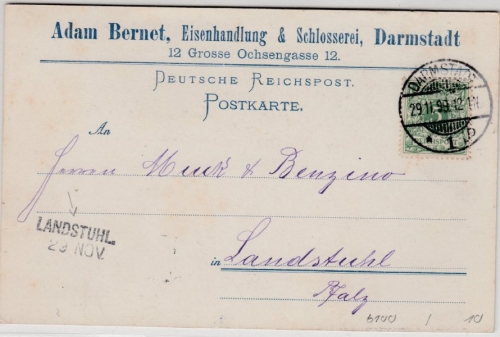 Adam Bernet, Eisenhandlung & Schlosserei, Darmstadt
12 Grosse Ochsengasse 12.
DEUTSCHE REICHSPOST.
POSTKARTE.
DARMSTADT
29.11.99.12-1N
* 1
An
Herren Muck & Benzino
LANDSTUHL.
29 NOV.
in Landstuhl
Pfalz
10